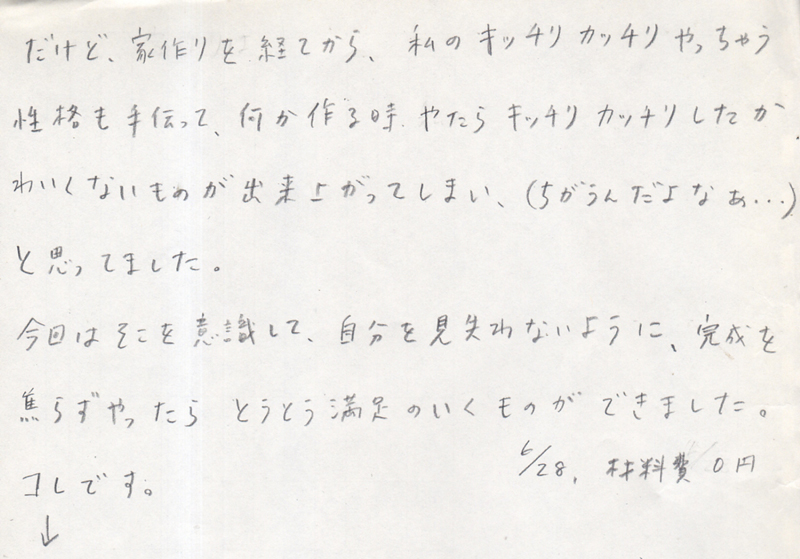 だけど、家作りを経てから、私のキッチリカッチリやっちゃう
性格も手伝って、何か作る時、やたらキッチリカッチリしたか
わいくないものが出来上がってしまい、(ちがうんだよなぁ…)
と思ってました。
今回はそこを意識して、自分を見失わないように、完成を
焦らずやったらとうとう満足のいくものができました。
コレです。
↓
/28, 材料費0円